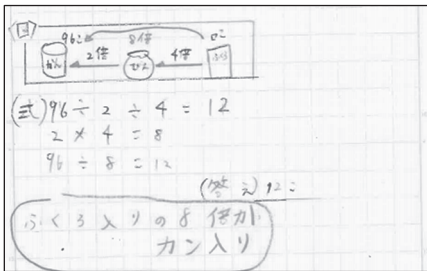 図
96こ 8倍 □こ
かん 2倍 びん 4倍 ふくろ
(式) 96 ÷ 2 ÷ 4 = 12
2 × 4 = 8
96 ÷ 8 = 12
(答え) 12こ
ふくろ入りの8倍が
カン入り